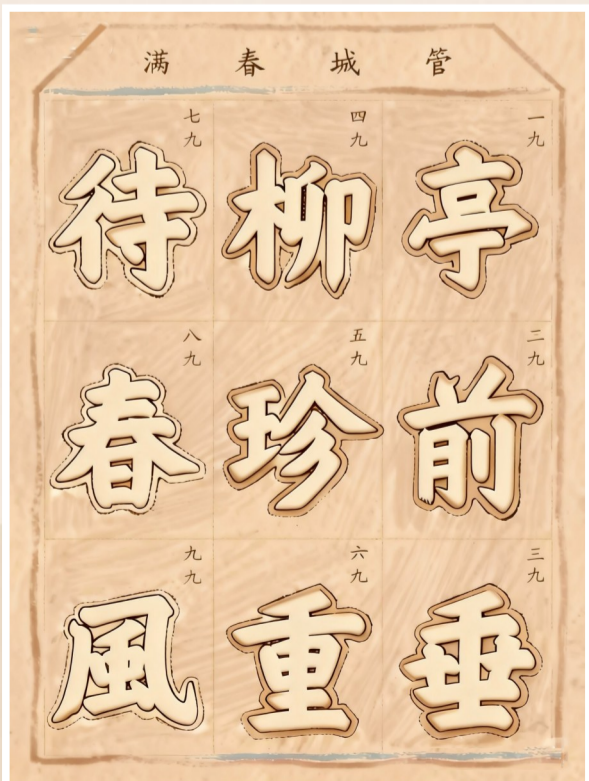 管城春满
一九
亭
二九
前
三九
垂
四九
柳
五九
珍
六九
重
七九
待
八九
春
九九
風